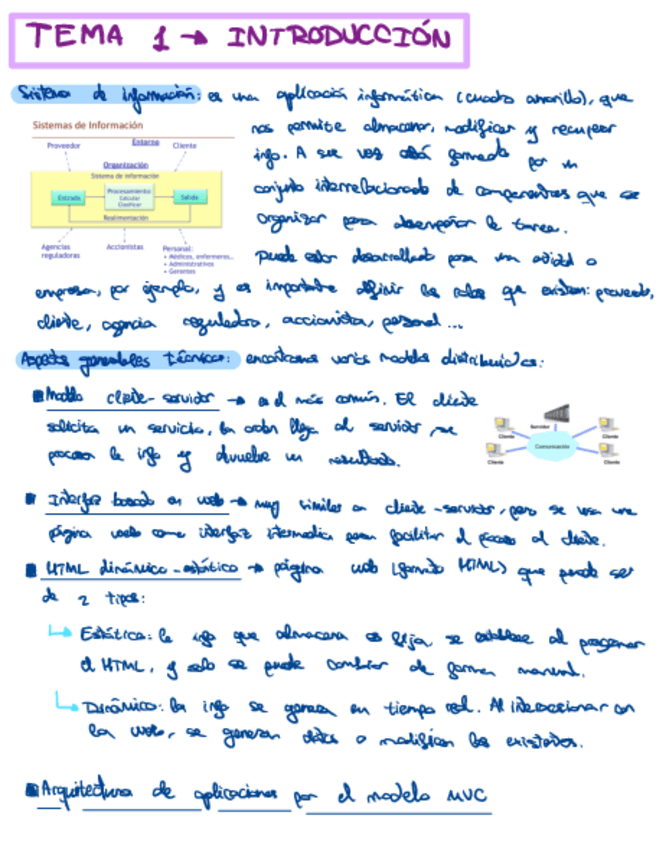 TEMA 1 → INTRODUCCIÓN
Sistema de información: es una aplicación informática (cuadro amarillo), que
nos permite almacenar, modificar y recuperar
info. A su vez está formado por un
conjunto interrelacionado de componentes que se
organizan para desempeñar la tarea.
Puede estar desarrollado para una entidad o
empresa, por ejemplo, y es importante definir los roles que existen: proveedor,
cliente, agencia reguladora, accionista, personal...
Sistemas de Información
Proveedor
Entorno
Cliente
Organización
Sistema de información
Entrada
Procesamiento
Calcular
Clasificar
Salida
Realimentación
Agencias
reguladoras
Accionistas
Personal:
• Médicos, enfermeros...
• Administrativos
• Gerentes
Aspectos generales técnicos: encontramos varios modelos distribuidos:
Modelo cliente-servidor → es el más común. El cliente
solicita un servicio, la orden llega al servidor, se
procesa la info y devuelve un resultado.
Servidor
Cliente
Cliente
Comunicación
Cliente
Cliente
Interfaz basada en web → muy similar a cliente-servidor, pero se usa una
página web como interfaz intermedia para facilitar el acceso al cliente.
HTML dinámico-estático → página web (formato HTML) que puede ser
de 2 tipos:
Estática: la info que almacena es fija, se establece al programar
el HTML, y solo se puede cambiar de forma manual.
Dinámico: la info se genera en tiempo real. Al interaccionar con
la web, se generan datos o modifican los existentes.
Arquitectura de aplicaciones por el modelo MVC